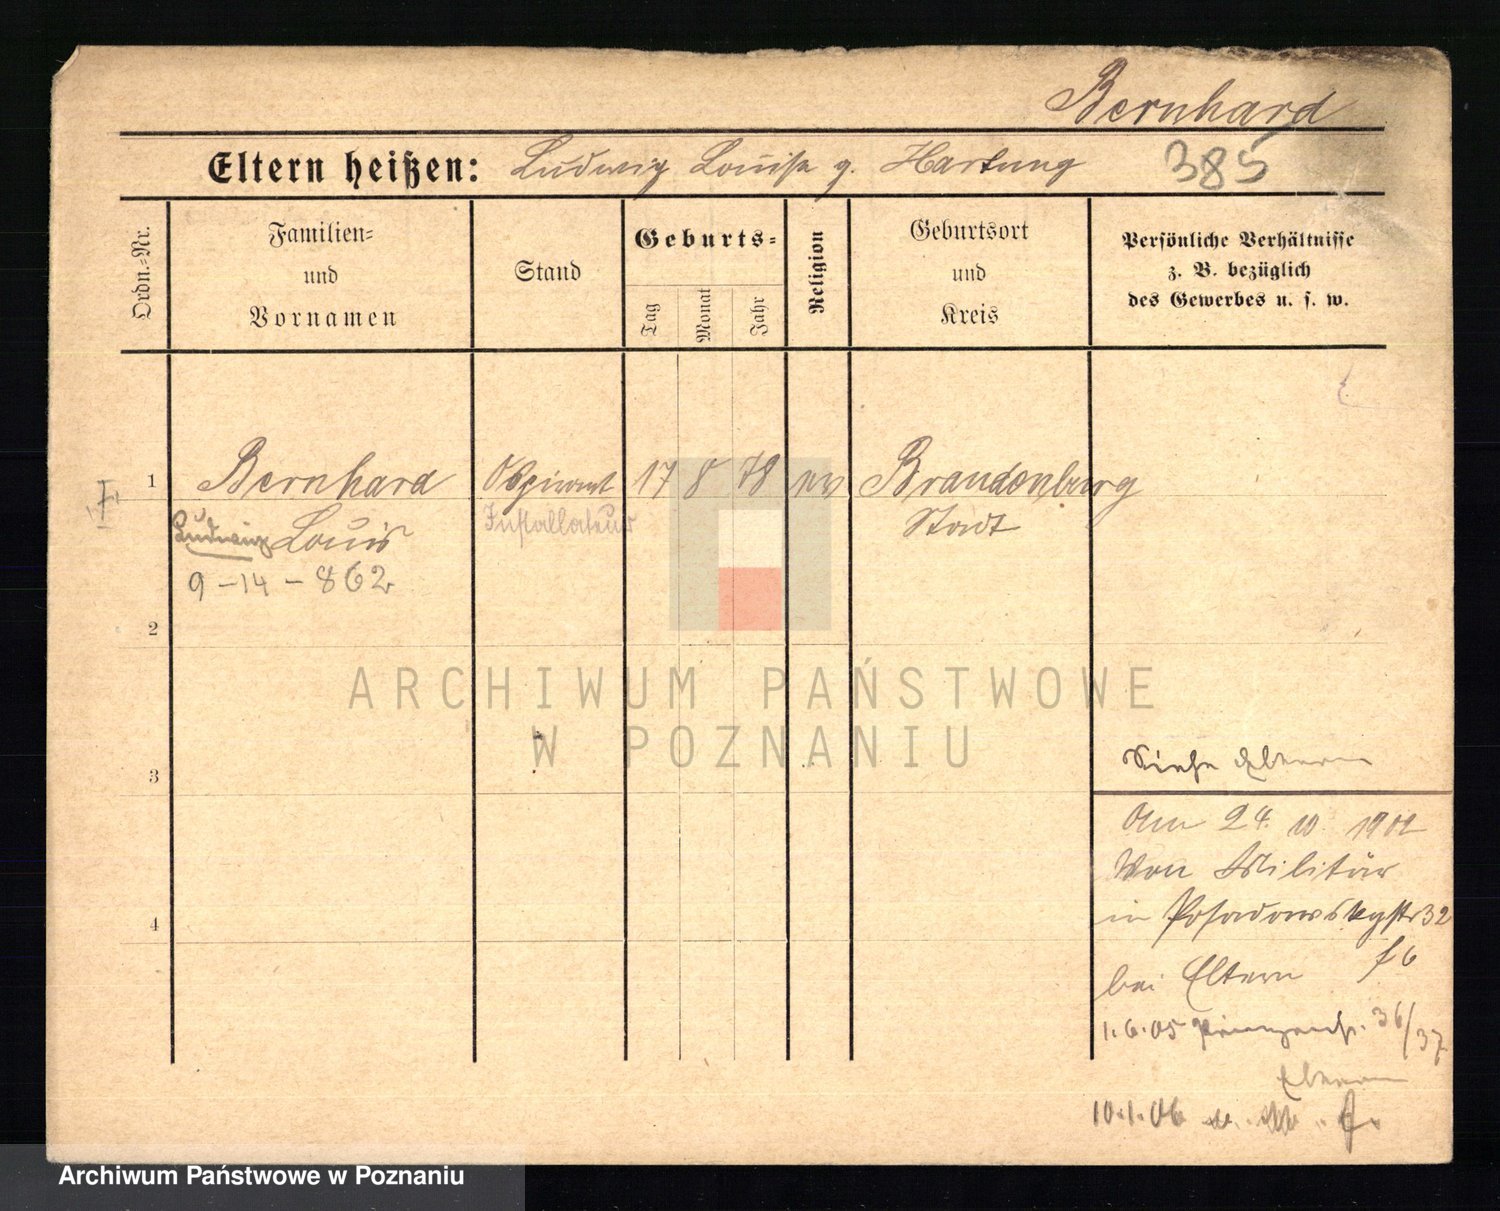 Bernhard
Eltern heißen: Ludwig Louise g. Hartung 385
Ordn.=Nr.
Familien=
und
Vornamen
Stand
Geburts=
Tag
Monat
Jahr
Religion
Geburtsort
und
Kreis
Persönliche Verhältnisse
z. B. bezüglich
des Gewerbes u. s. w.
1 Bernhard 17 8 78 ev Brandenburg
Installateur
Ludwig Louis Stadt
9-14-862
2
ARCHIWUM PAŃSTWOWE
W POZNANIU
3
Siehe Eltern
Am 24. 10. 1902
Von Militär
in Posadowskystr 32
4
bei Eltern f 6
1.6.05 36/37
Eltern
10.1.06
Archiwum Państwowe w Poznaniu